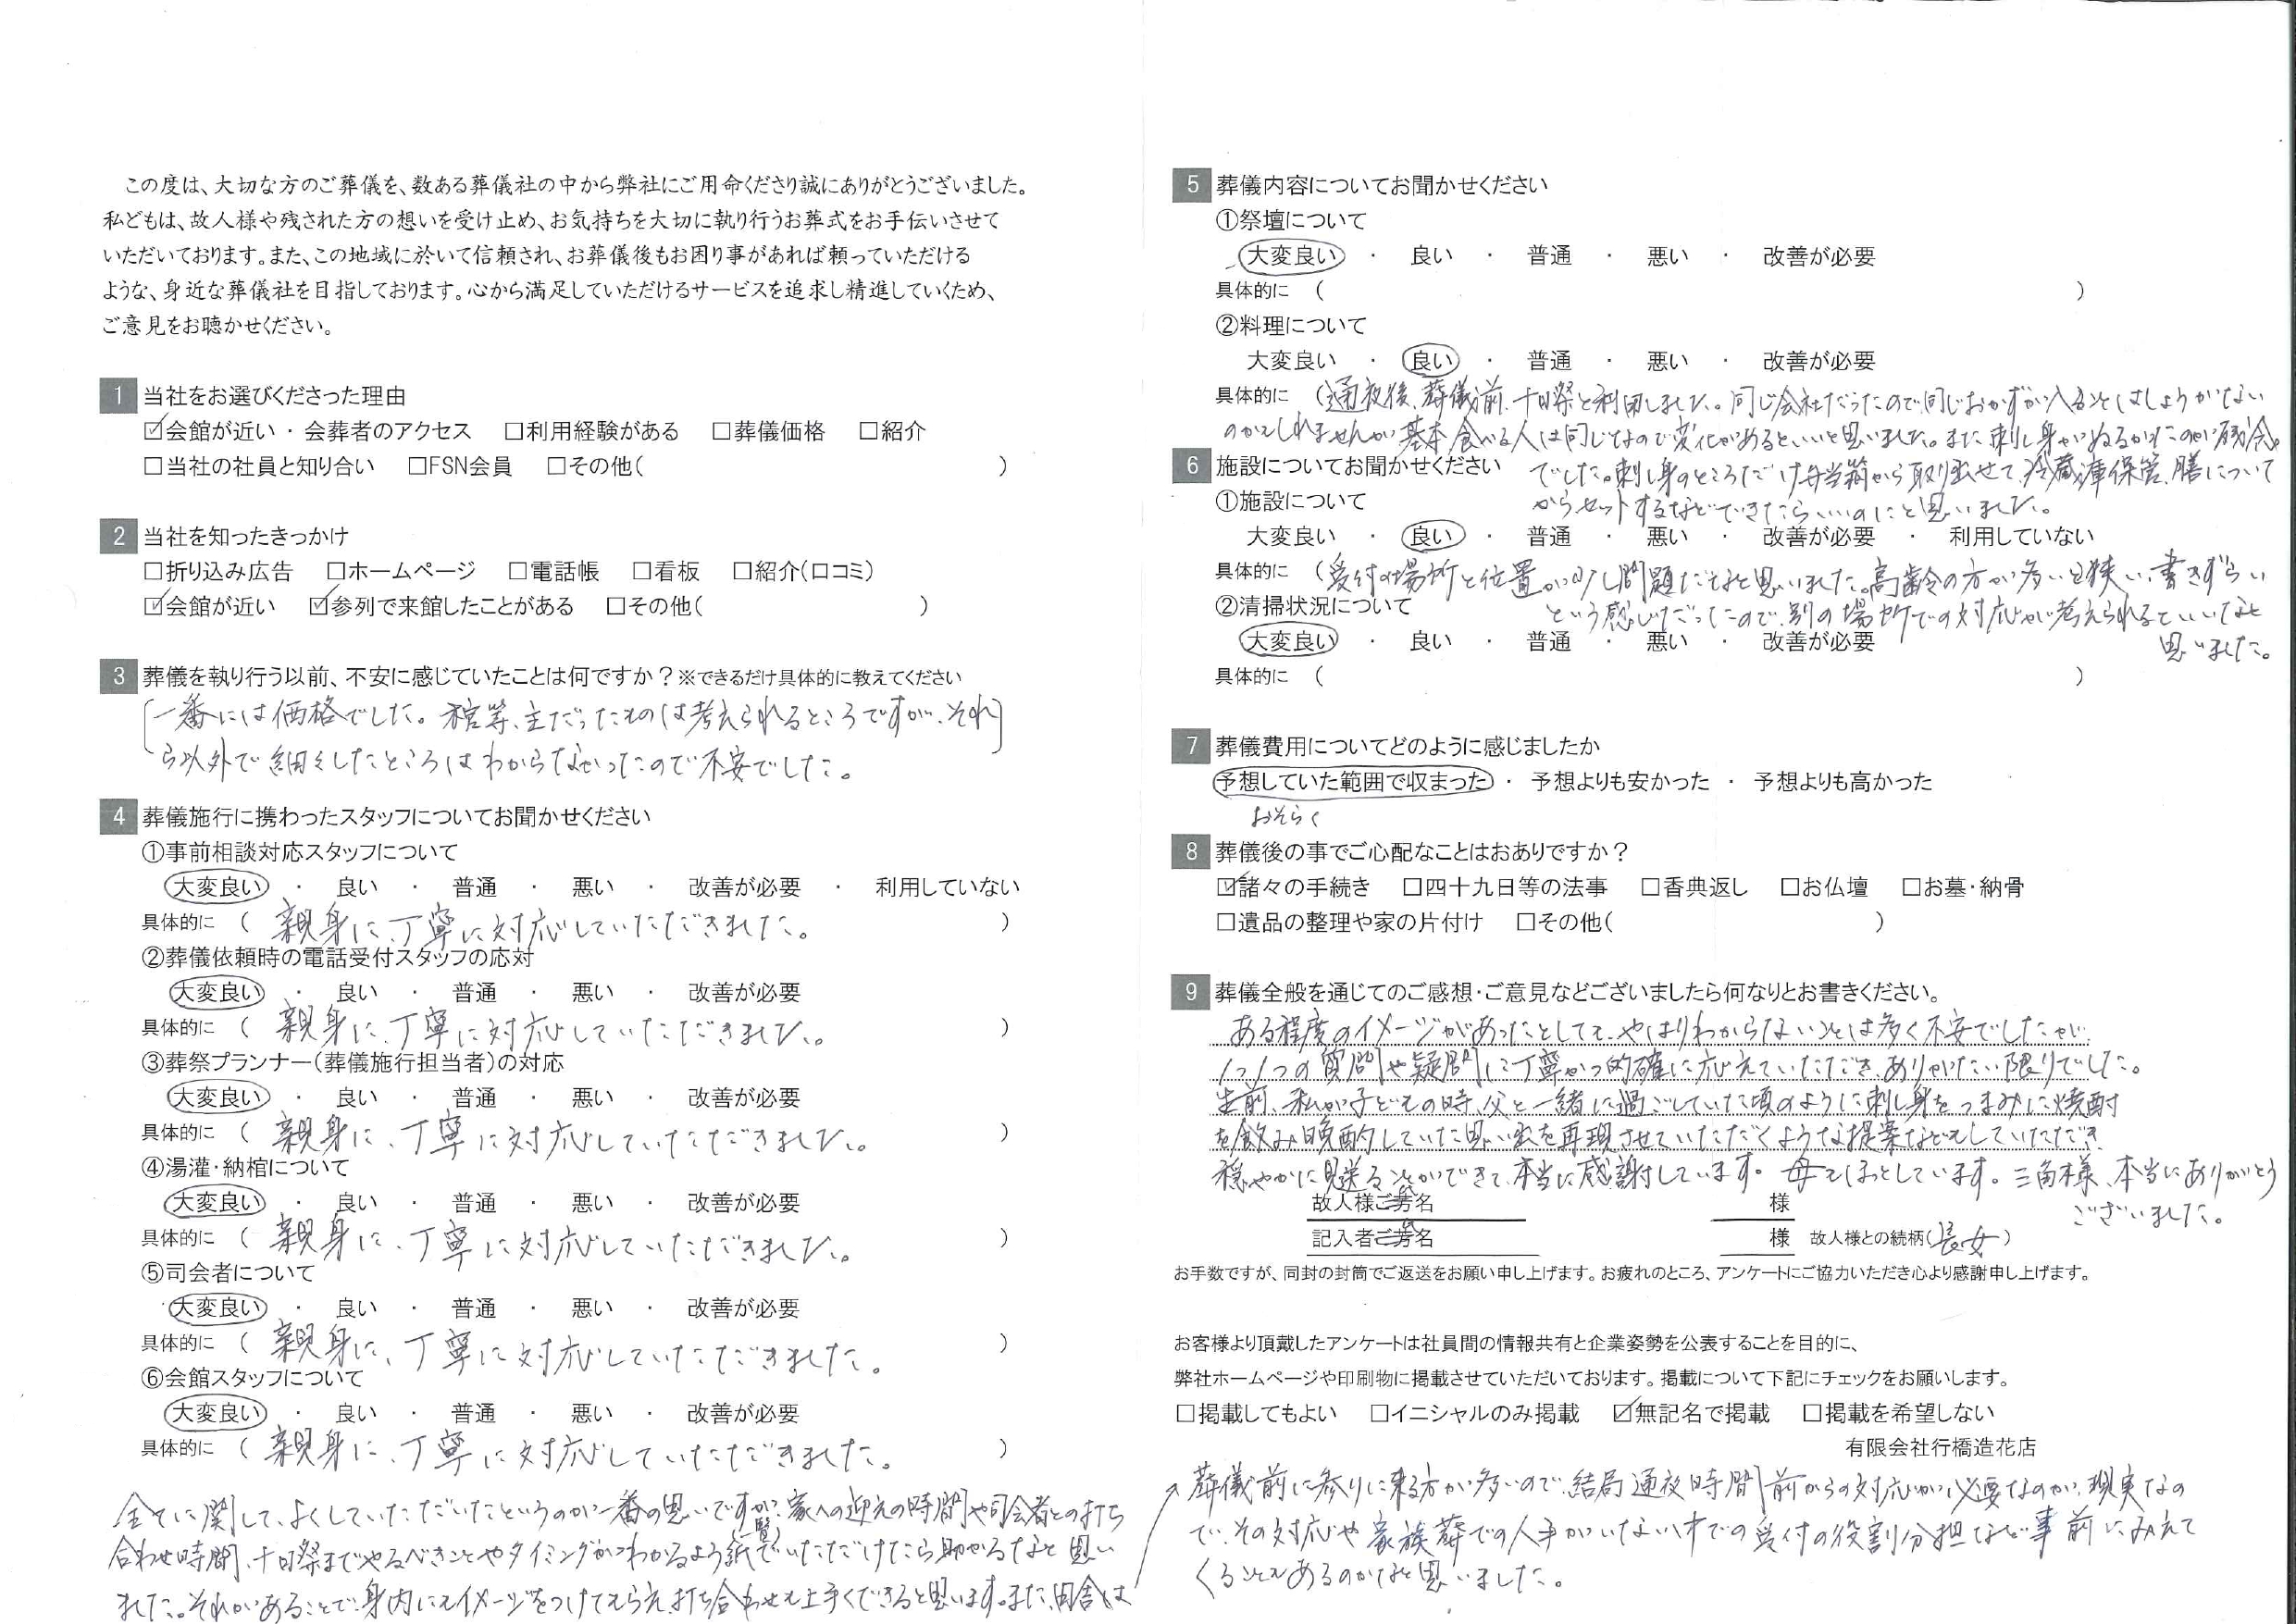 この度は、大切な方のご葬儀を、数ある葬儀社の中から弊社にご用命くださり誠にありがとうございました。
私どもは、故人様や残された方の想いを受け止め、お気持ちを大切に執り行うお葬式をお手伝いさせて
いただいております。また、この地域に於いて信頼され、お葬儀後もお困り事があれば頼っていただける
ような、身近な葬儀社を目指しております。心から満足していただけるサービスを追求し精進していくため、
ご意見をお聴かせください。
1 当社をお選びくださった理由
☑会館が近い・会葬者のアクセス □利用経験がある □葬儀価格 □紹介
□当社の社員と知り合い □FSN会員 □その他( )
2 当社を知ったきっかけ
□折り込み広告 □ホームページ □電話帳 □看板 □紹介(口コミ)
☑会館が近い ☑参列で来館したことがある □その他( )
3 葬儀を執り行う以前、不安に感じていたことは何ですか？※できるだけ具体的に教えてください
一番には価格でした。棺等、主だったものは考えられるところですが、それ
ら以外で細々したところはわからなかったので不安でした。
4 葬儀施行に携わったスタッフについてお聞かせください
①事前相談対応スタッフについて
大変良い ・ 良い ・ 普通 ・ 悪い ・ 改善が必要 ・ 利用していない
具体的に ( 親身に、丁寧に対応していただきました。 )
②葬儀依頼時の電話受付スタッフの応対
大変良い ・ 良い ・ 普通 ・ 悪い ・ 改善が必要
具体的に ( 親身に、丁寧に対応していただきました。 )
③葬祭プランナー(葬儀施行担当者)の対応
大変良い ・ 良い ・ 普通 ・ 悪い ・ 改善が必要
具体的に ( 親身に、丁寧に対応していただきました。 )
④湯灌・納棺について
大変良い ・ 良い ・ 普通 ・ 悪い ・ 改善が必要
具体的に ( 親身に、丁寧に対応していただきました。 )
⑤司会者について
大変良い ・ 良い ・ 普通 ・ 悪い ・ 改善が必要
具体的に ( 親身に、丁寧に対応していただきました。 )
⑥会館スタッフについて
大変良い ・ 良い ・ 普通 ・ 悪い ・ 改善が必要
具体的に ( 親身に、丁寧に対応していただきました。 )
全てに関して、よくしていただいたというのが一番の思いですが、家への迎えの時間や司会者との打ち
合わせ時間、十日祭までやるべきことやタイミングがわかるよう紙(一覧)でいただけたら助かるなと思い
ました。それがあることで、身内にもイメージをつけてもらえ、打ち合わせも上手くできると思います。また、田舎は
5 葬儀内容についてお聞かせください
①祭壇について
大変良い ・ 良い ・ 普通 ・ 悪い ・ 改善が必要
具体的に ( )
②料理について
大変良い ・ 良い ・ 普通 ・ 悪い ・ 改善が必要
具体的に (通夜後、葬儀前、十日祭と利用しました。同じ会社だったので同じおかずが入ることはしょうがない
のかもしれませんが基本食べる人は同じなので変化があるといいと思いました。また刺し身がぬるかったのが残念
でした。刺し身のところだけ弁当箱から取り出せて、冷蔵庫保管、膳について
からセットするなどできたらいいのにと思いました。
6 施設についてお聞かせください
①施設について
大変良い ・ 良い ・ 普通 ・ 悪い ・ 改善が必要 ・ 利用していない
具体的に (受付の場所と位置が少し問題だなと思いました。高齢の方が多いと狭い、書きずらい
という感じだったので、別の場所での対応が考えられるといいなと
思いました。
②清掃状況について
大変良い ・ 良い ・ 普通 ・ 悪い ・ 改善が必要
具体的に ( )
7 葬儀費用についてどのように感じましたか
予想していた範囲で収まった ・ 予想よりも安かった ・ 予想よりも高かった
おそらく
8 葬儀後の事でご心配なことはおありですか？
☑諸々の手続き □四十九日等の法事 □香典返し □お仏壇 □お墓・納骨
□遺品の整理や家の片付け □その他( )
9 葬儀全般を通じてのご感想・ご意見などございましたら何なりとお書きください。
ある程度のイメージがあったとしても、やはりわからないことは多く不安でしたが、
1つ1つの質問や疑問に丁寧かつ的確に応えていただき、ありがたい限りでした。
生前、私が子どもの時、父と一緒に過ごしていた頃のように刺し身をつまみに焼酎
を飲み晩酌していた思い出を再現させていただくような提案などもしていただき
穏やかに見送ることができて、本当に感謝しています。母もほっとしています。三角様、本当にありがとう
ございました。
故人様ご芳名 様
記入者ご芳名 様 故人様との続柄(長女)
お手数ですが、同封の封筒でご返送をお願い申し上げます。お疲れのところ、アンケートにご協力いただき心より感謝申し上げます。
お客様より頂戴したアンケートは社員間の情報共有と企業姿勢を公表することを目的に、
弊社ホームページや印刷物に掲載させていただいております。掲載について下記にチェックをお願いします。
□掲載してもよい □イニシャルのみ掲載 ☑無記名で掲載 □掲載を希望しない
有限会社行橋造花店
葬儀前に参りに来る方が多いので、結局通夜時間前からの対応が必要なのが、現実なの
で、その対応や家族葬での人手がいない中での受付の役割分担など事前にみえて
くることもあるのかなと思いました。